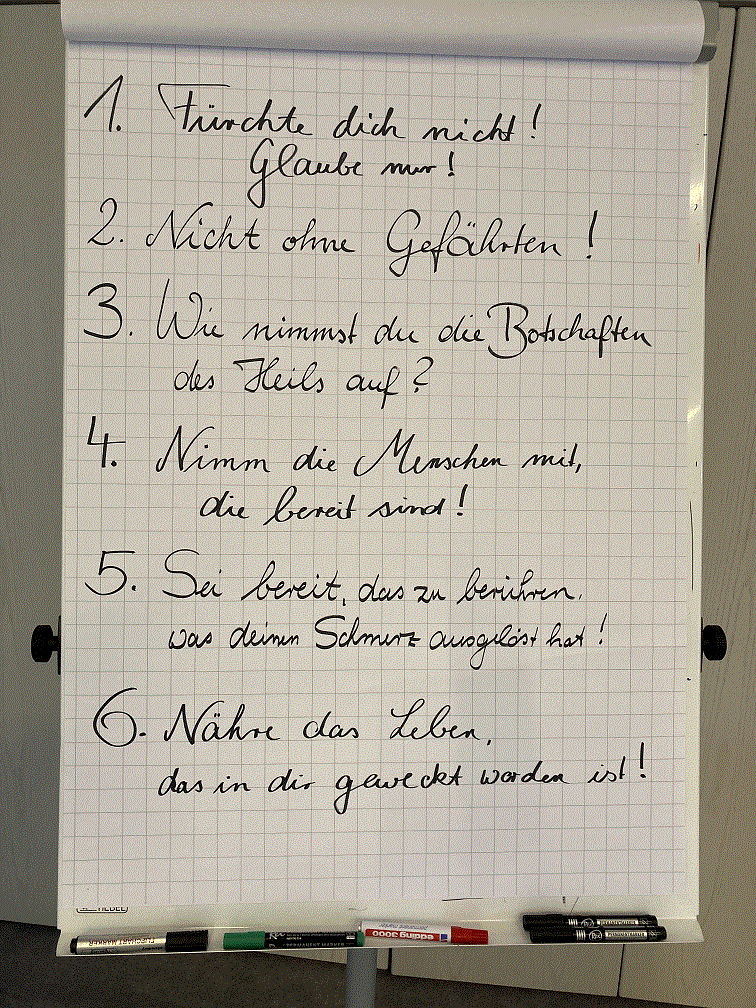 1. Fürchte dich nicht!
Glaube nur!
2. Nicht ohne Gefährten!
3. Wie nimmst du die Botschaften
des Heils auf?
4. Nimm die Menschen mit,
die bereit sind!
5. Sei bereit, das zu berühren,
was deinen Schmerz ausgelöst hat!
6. Nähre das Leben,
das in dir geweckt worden ist!
FLIPCHART MARKER
PERMANENT MARKER
edding 3000
PERMANENT MARKER
PERMANENT MARKER